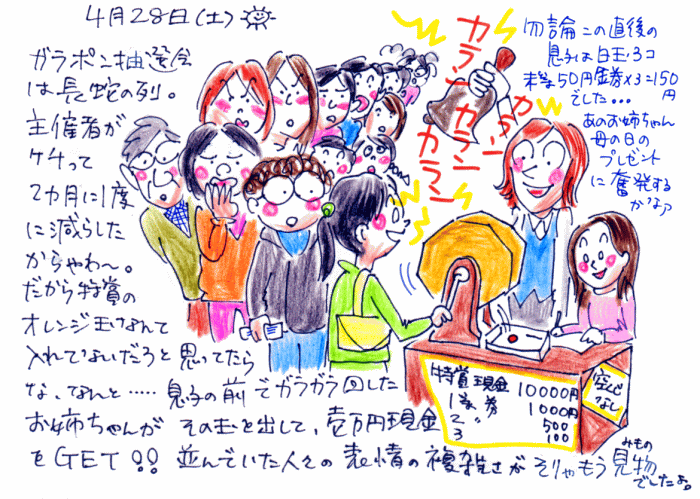 4月28日(土)
ガラポン抽選会
は長蛇の列。
主催者が
ケチって
2カ月に1度
に減らした
からやわ〜。
だから特賞の
オレンジ玉なんて
入れてないだろと思ってたら
な、なんと……息子の前でガラガラ回した
お姉ちゃんがその玉を出して、壱万円現金
をGET!! 並んでいた人々の表情の複雑さがそりゃもう見物
みもの
でしたよ。
カラン
カラン
カラン
カラン
勿論この直後の
息子は白玉3コ
50円金券×3=150
円
でした…
あのお姉ちゃん
母の日の
プレゼント
に奮発する
かなぁ
特賞 現金 10000円
1等 券 1000円
2 〃 500
3 100
なし